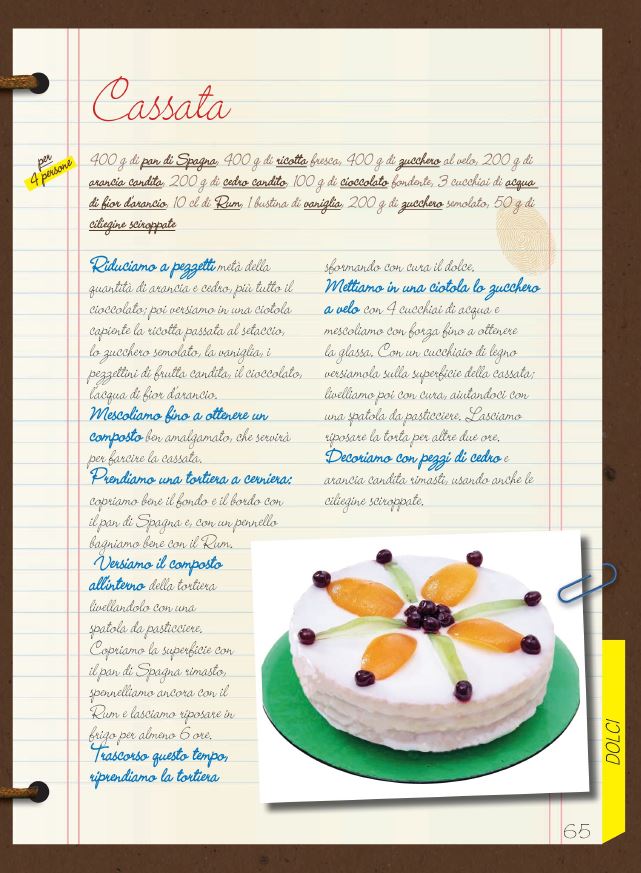 Cassata
per
4 persone
400 g di pan di Spagna, 400 g di ricotta fresca, 400 g di zucchero al velo, 200 g di
arancia candita, 200 g di cedro candito, 100 g di cioccolato fondente, 3 cucchiai di acqua
di fior d'arancio, 10 cl di Rum, 1 bustina di vaniglia, 200 g di zucchero semolato, 50 g di
ciliegine sciroppate
Riduciamo a pezzetti metà della
quantità di arancia e cedro, più tutto il
cioccolato; poi versiamo in una ciotola
capiente la ricotta passata al setaccio,
lo zucchero semolato, la vaniglia, i
pezzettini di frutta candita, il cioccolato,
l'acqua di fior d'arancio.
Mescoliamo fino a ottenere un
composto ben amalgamato, che servirà
per farcire la cassata.
Prendiamo una tortiera a cerniera:
copriamo bene il fondo e il bordo con
il pan di Spagna e, con un pennello
bagniamo bene con il Rum.
Versiamo il composto
all'interno della tortiera
livellandolo con una
spatola da pasticciere.
Copriamo la superficie con
il pan di Spagna rimasto,
spennelliamo ancora con il
Rum e lasciamo riposare in
frigo per almeno 6 ore.
Trascorso questo tempo,
riprendiamo la tortiera
sformando con cura il dolce.
Mettiamo in una ciotola lo zucchero
a velo con 4 cucchiai di acqua e
mescoliamo con forza fino a ottenere
la glassa. Con un cucchiaio di legno
versiamola sulla superficie della cassata;
livelliamo poi con cura, aiutandoci con
una spatola da pasticciere. Lasciamo
riposare la torta per altre due ore.
Decoriamo con pezzi di cedro e
arancia candita rimasti, usando anche le
ciliegine sciroppate.
DOLCI
65